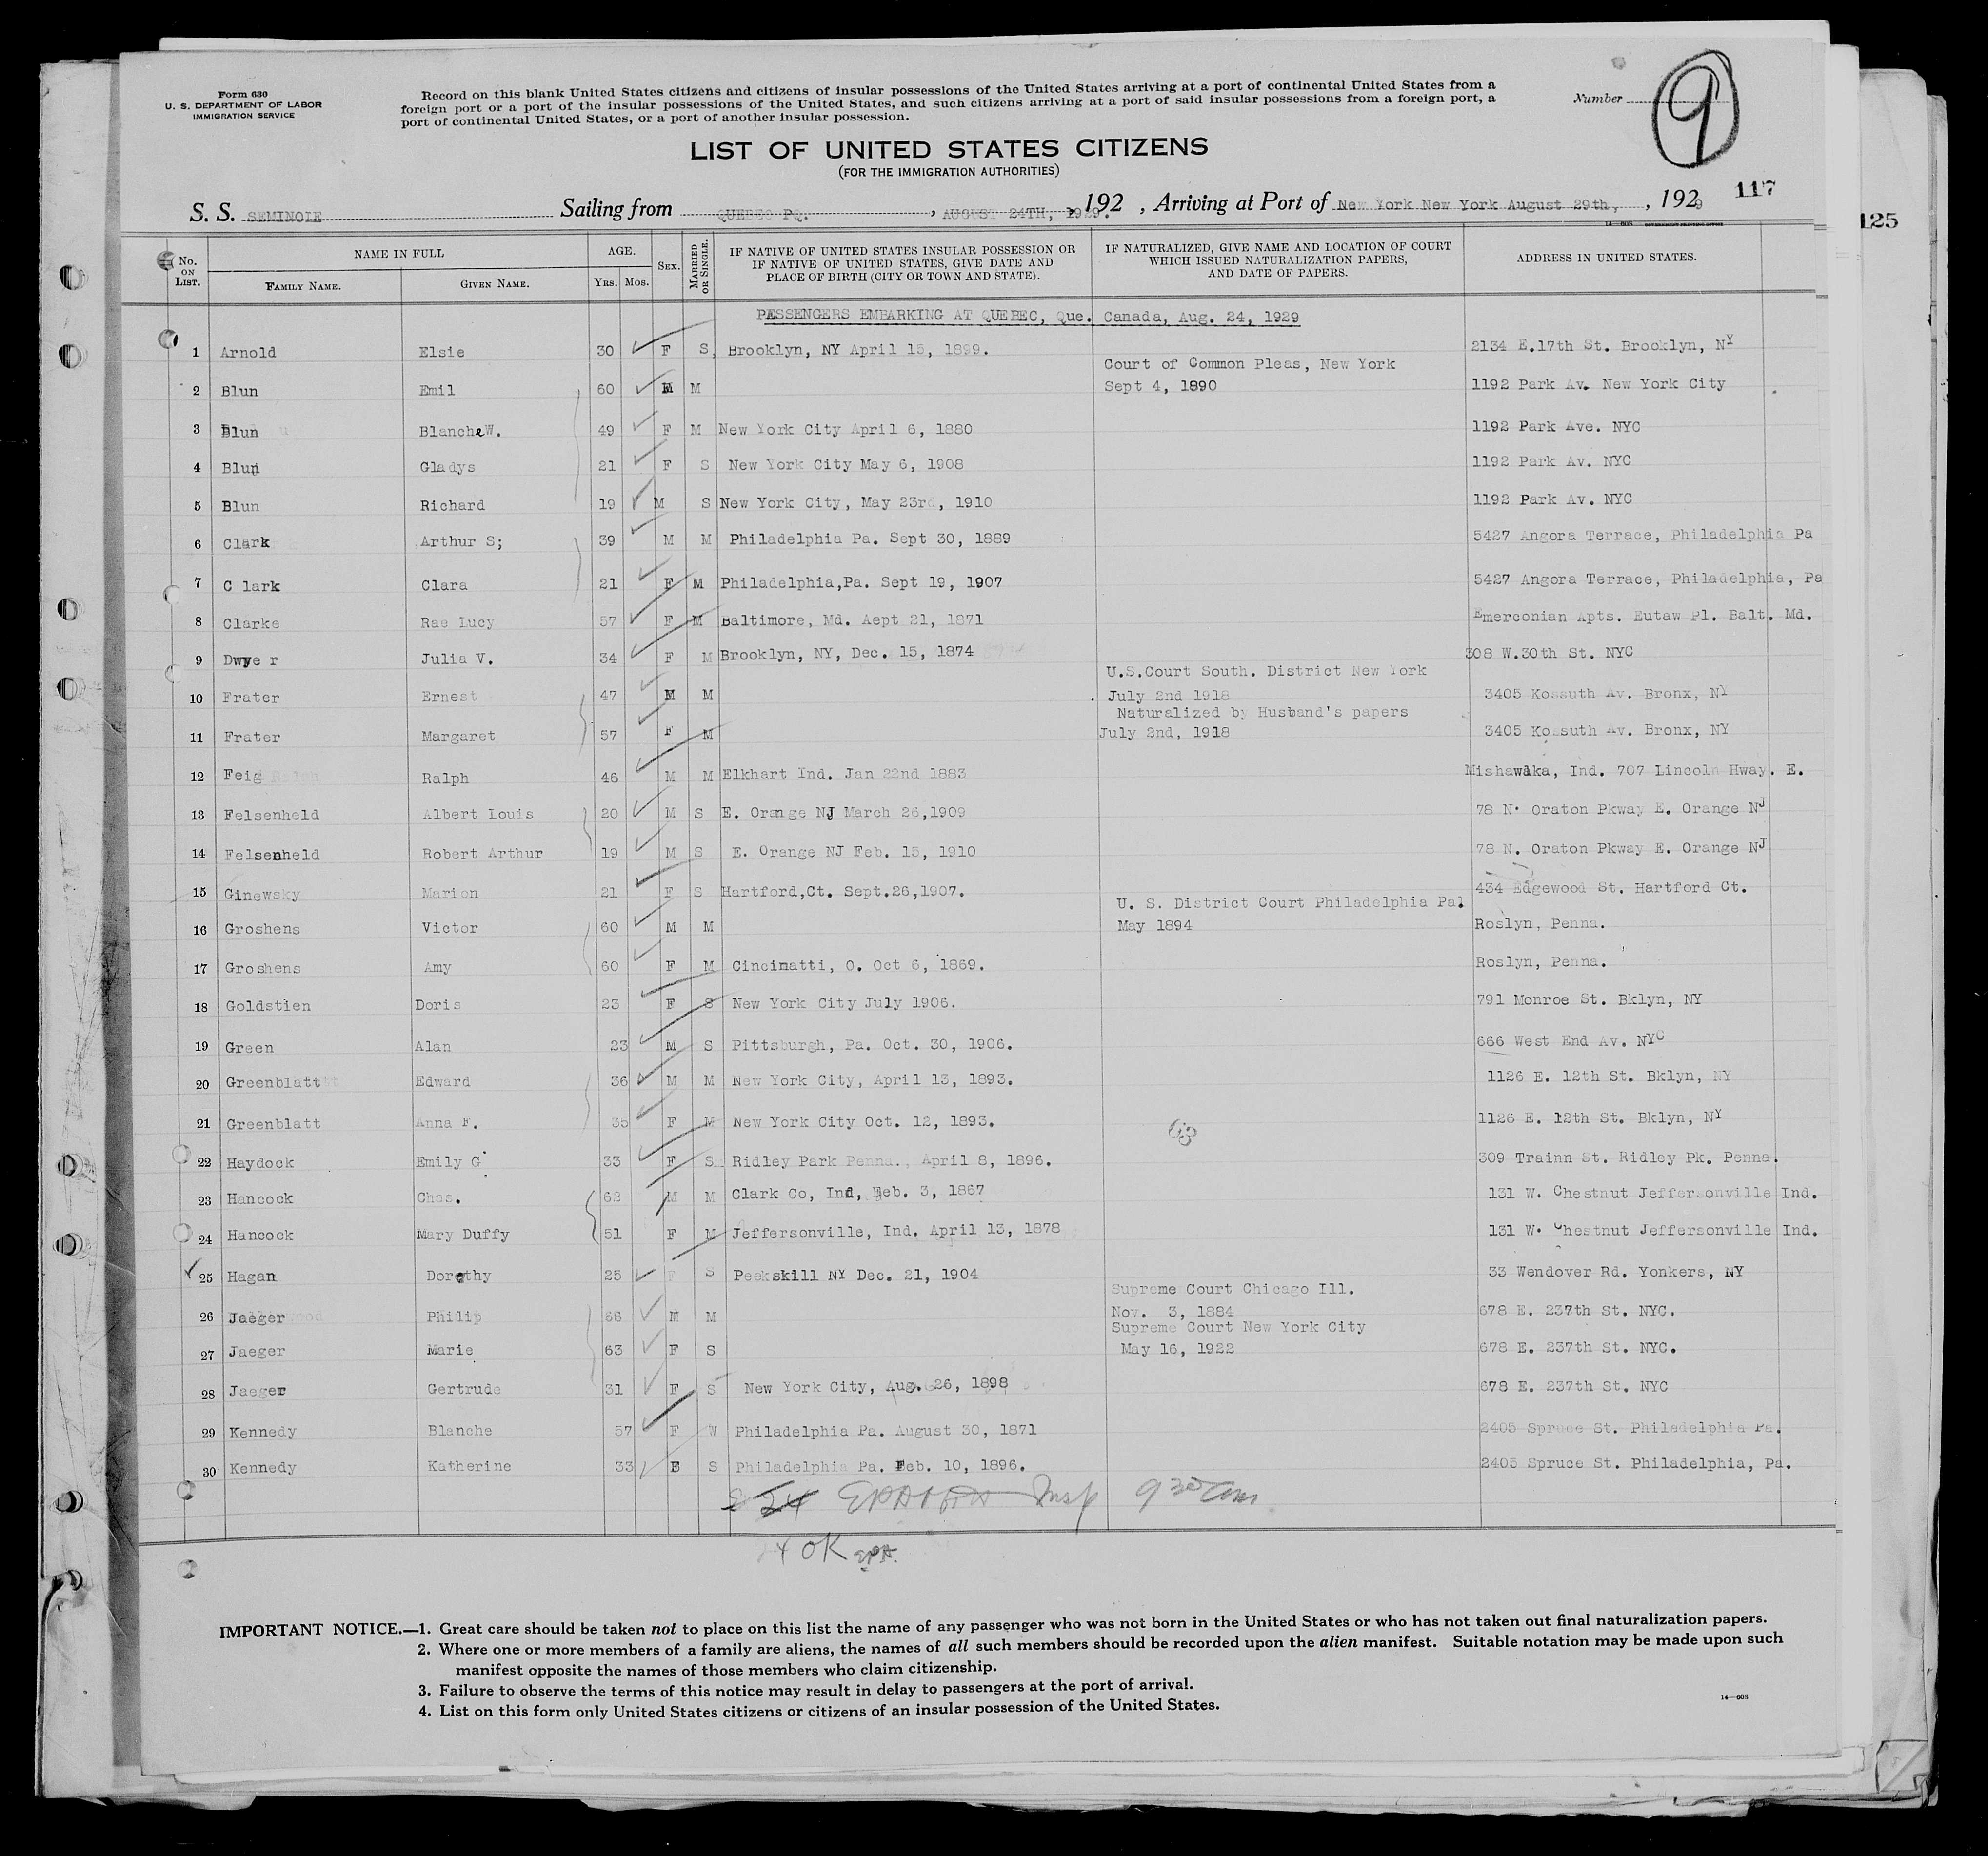 Form 630
U. S. DEPARTMENT OF LABOR
IMMIGRATION SERVICE
Record on this blank United States citizens and citizens of insular possessions of the United States arriving at a port of continental United States from a
foreign port or a port of the insular possessions of the United States, and such citizens arriving at a port of said insular possessions from a foreign port, a
port of continental United States, or a port of another insular possession.
Number 9
LIST OF UNITED STATES CITIZENS
(FOR THE IMMIGRATION AUTHORITIES)
S. S. SEMINOLE Sailing from QUEBEC PQ. , AUGUST 24TH, 1929. 192 , Arriving at Port of New York New York August 29th, , 1929 117
125
No. ON LIST. NAME IN FULL FAMILY NAME. GIVEN NAME. AGE. YRS. MOS. SEX. MARRIED OR SINGLE. IF NATIVE OF UNITED STATES INSULAR POSSESSION OR IF NATIVE OF UNITED STATES, GIVE DATE AND PLACE OF BIRTH (CITY OR TOWN AND STATE). IF NATURALIZED, GIVE NAME AND LOCATION OF COURT WHICH ISSUED NATURALIZATION PAPERS, AND DATE OF PAPERS. ADDRESS IN UNITED STATES.
PASSENGERS EMBARKING AT QUEBEC, Que. Canada, Aug. 24, 1929
1 Arnold Elsie 30 F S Brooklyn, NY April 15, 1899. 2134 E.17th St. Brooklyn, NY
Court of Common Pleas, New York
2 Blun Emil 60 M M Sept 4, 1890 1192 Park Av. New York City
3 Blun Blanche W. 49 F M New York City April 6, 1880 1192 Park Ave. NYC
4 Blun Gladys 21 F S New York City May 6, 1908 1192 Park Av. NYC
5 Blun Richard 19 M S New York City, May 23rd, 1910 1192 Park Av. NYC
6 Clark Arthur S; 39 M M Philadelphia Pa. Sept 30, 1889 5427 Angora Terrace, Philadelphia Pa
7 C lark Clara 21 F M Philadelphia,Pa. Sept 19, 1907 5427 Angora Terrace, Philadelphia, Pa
8 Clarke Rae Lucy 57 F M Baltimore, Md. Aept 21, 1871 Emerconian Apts. Eutaw Pl. Balt. Md.
9 Dwye r Julia V. 34 F M Brooklyn, NY, Dec. 15, 1874 308 W.30th St. NYC
U.S.Court South. District New York
10 Frater Ernest 47 M M July 2nd 1918 3405 Kossuth Av. Bronx, NY
Naturalized by Husband's papers
11 Frater Margaret 57 F M July 2nd, 1918 3405 Kossuth Av. Bronx, NY
12 Feig Ralph 46 M M Elkhart Ind. Jan 22nd 1883 Mishawaka, Ind. 707 Lincoln Hway. E.
13 Felsenheld Albert Louis 20 M S E. Orange NJ March 26,1909 78 N. Oraton Pkway E. Orange NJ
14 Felsenheld Robert Arthur 19 M S E. Orange NJ Feb. 15, 1910 78 N. Oraton Pkway E. Orange NJ
15 Ginewsky Marion 21 F S Hartford,Ct. Sept.26,1907. 434 Edgewood St. Hartford Ct.
U. S. District Court Philadelphia Pa.
16 Groshens Victor 60 M M May 1894 Roslyn, Penna.
17 Groshens Amy 60 F M Cincinatti, O. Oct 6, 1869. Roslyn, Penna.
18 Goldstien Doris 23 F S New York City July 1906. 791 Monroe St. Bklyn, NY
19 Green Alan 23 M S Pittsburgh, Pa. Oct. 30, 1906. 666 West End Av. NYC
20 Greenblatt Edward 36 M M New York City, April 13, 1893. 1126 E. 12th St. Bklyn, NY
21 Greenblatt Anna F. 35 F M New York City Oct. 12, 1893. 1126 E. 12th St. Bklyn, NY
22 Haydock Emily G 33 F S Ridley Park Penna., April 8, 1896. 309 Trainn St. Ridley Pk. Penna.
23 Hancock Chas. 62 M M Clark Co, Ind, Feb. 3, 1867 131 W. Chestnut Jeffersonville Ind.
24 Hancock Mary Duffy 51 F M Jeffersonville, Ind. April 13, 1878 131 W. Chestnut Jeffersonville Ind.
25 Hagan Dorothy 25 F S Peekskill NY Dec. 21, 1904 33 Wendover Rd. Yonkers, NY
Supreme Court Chicago Ill.
26 Jaeger Philip 68 M M Nov. 3, 1884 678 E. 237th St. NYC.
Supreme Court New York City
27 Jaeger Marie 63 F S May 16, 1922 678 E. 237th St. NYC.
28 Jaeger Gertrude 31 F S New York City, Aug. 26, 1898 678 E. 237th St. NYC
29 Kennedy Blanche 57 F W Philadelphia Pa. August 30, 1871 2405 Spruce St. Philadelphia Pa.
30 Kennedy Katherine 33 F S Philadelphia Pa. Feb. 10, 1896. 2405 Spruce St. Philadelphia, Pa.
Insp 9 30 am
OK
IMPORTANT NOTICE.—1. Great care should be taken not to place on this list the name of any passenger who was not born in the United States or who has not taken out final naturalization papers.
2. Where one or more members of a family are aliens, the names of all such members should be recorded upon the alien manifest. Suitable notation may be made upon such
manifest opposite the names of those members who claim citizenship.
3. Failure to observe the terms of this notice may result in delay to passengers at the port of arrival.
4. List on this form only United States citizens or citizens of an insular possession of the United States.
14—608